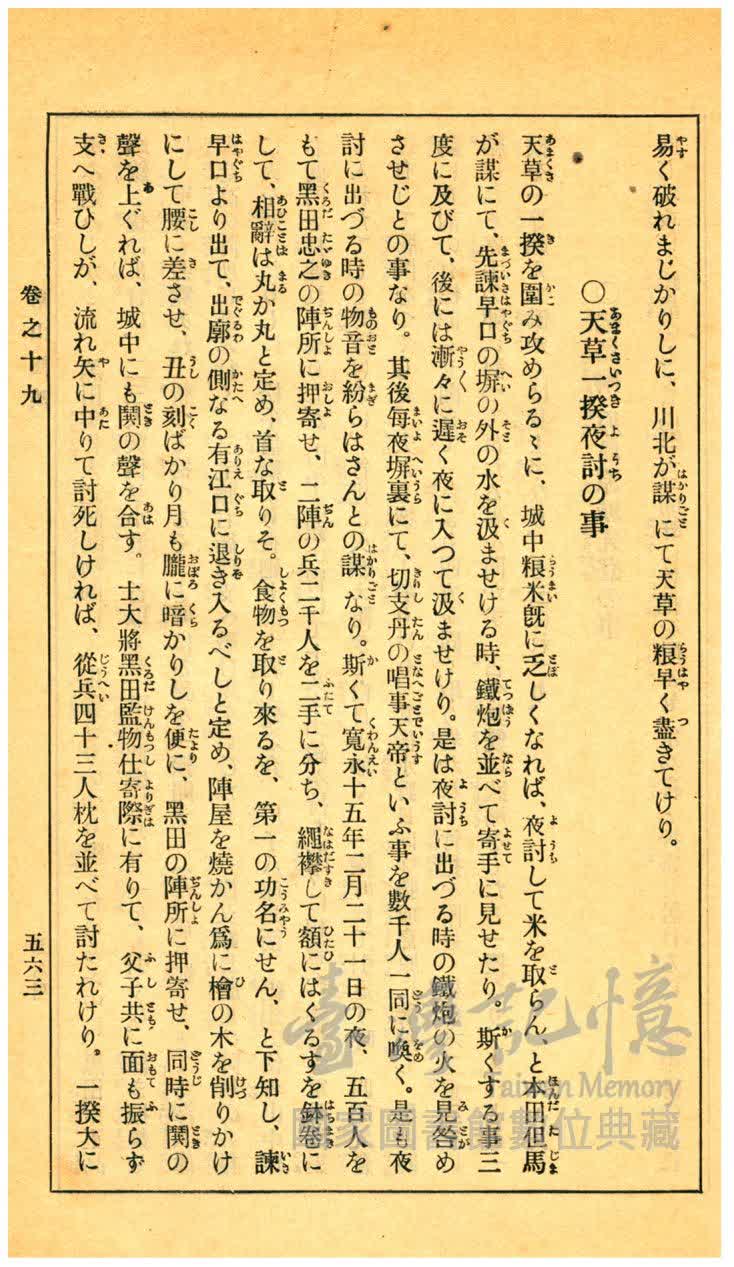 易く破れまじかりしに、川北が謀にて天草の粮早く盡きてけり。
〇天草一揆夜討の事
天草の一揆を圍み攻めらるゝに、城中粮米旣に乏しくなれば、夜討して米を取らん、と本田但馬
が謀にて、先諫早口の塀の外の水を汲ませける時、鐵炮を並べて寄手に見せたり。斯くする事三
度に及びて、後には漸々に遲く夜に入つて汲ませけり。是は夜討に出づる時の鐵炮の火を見咎め
させじとの事なり。其後每夜塀裏にて、切支丹の唱事天帝といふ事を數千人一同に喚く。是も夜
討に出づる時の物音を紛らはさんとの謀なり。斯くて寬永十五年二月二十一日の夜、五百人を
もて黑田忠之の陣所に押寄せ、二陣の兵二千人を二手に分ち、繩襷して額にはくるすを鉢卷に
して、相辭は丸か丸と定め、首な取りそ。食物を取り來るを、第一の功名にせん、と下知し、諫
早口より出て、出廓の側なる有江口に退き入るべしと定め、陣屋を燒かん爲に檜の木を削りかけ
にして腰に差させ、丑の刻ばかり月も朧に暗かりしを便に、黑田の陣所に押寄せ、同時に鬨の
聲を上ぐれば、城中にも鬨の聲を合す。士大將黑田監物仕寄際に有りて、父子共に面も振らず
支へ戰ひしが、流れ矢に中りて討死しければ、從兵四十三人枕を並べて討たれけり。一揆大に
卷之十九
五六三
臺灣記憶
Taiwan Memory
國家圖書館數位典藏